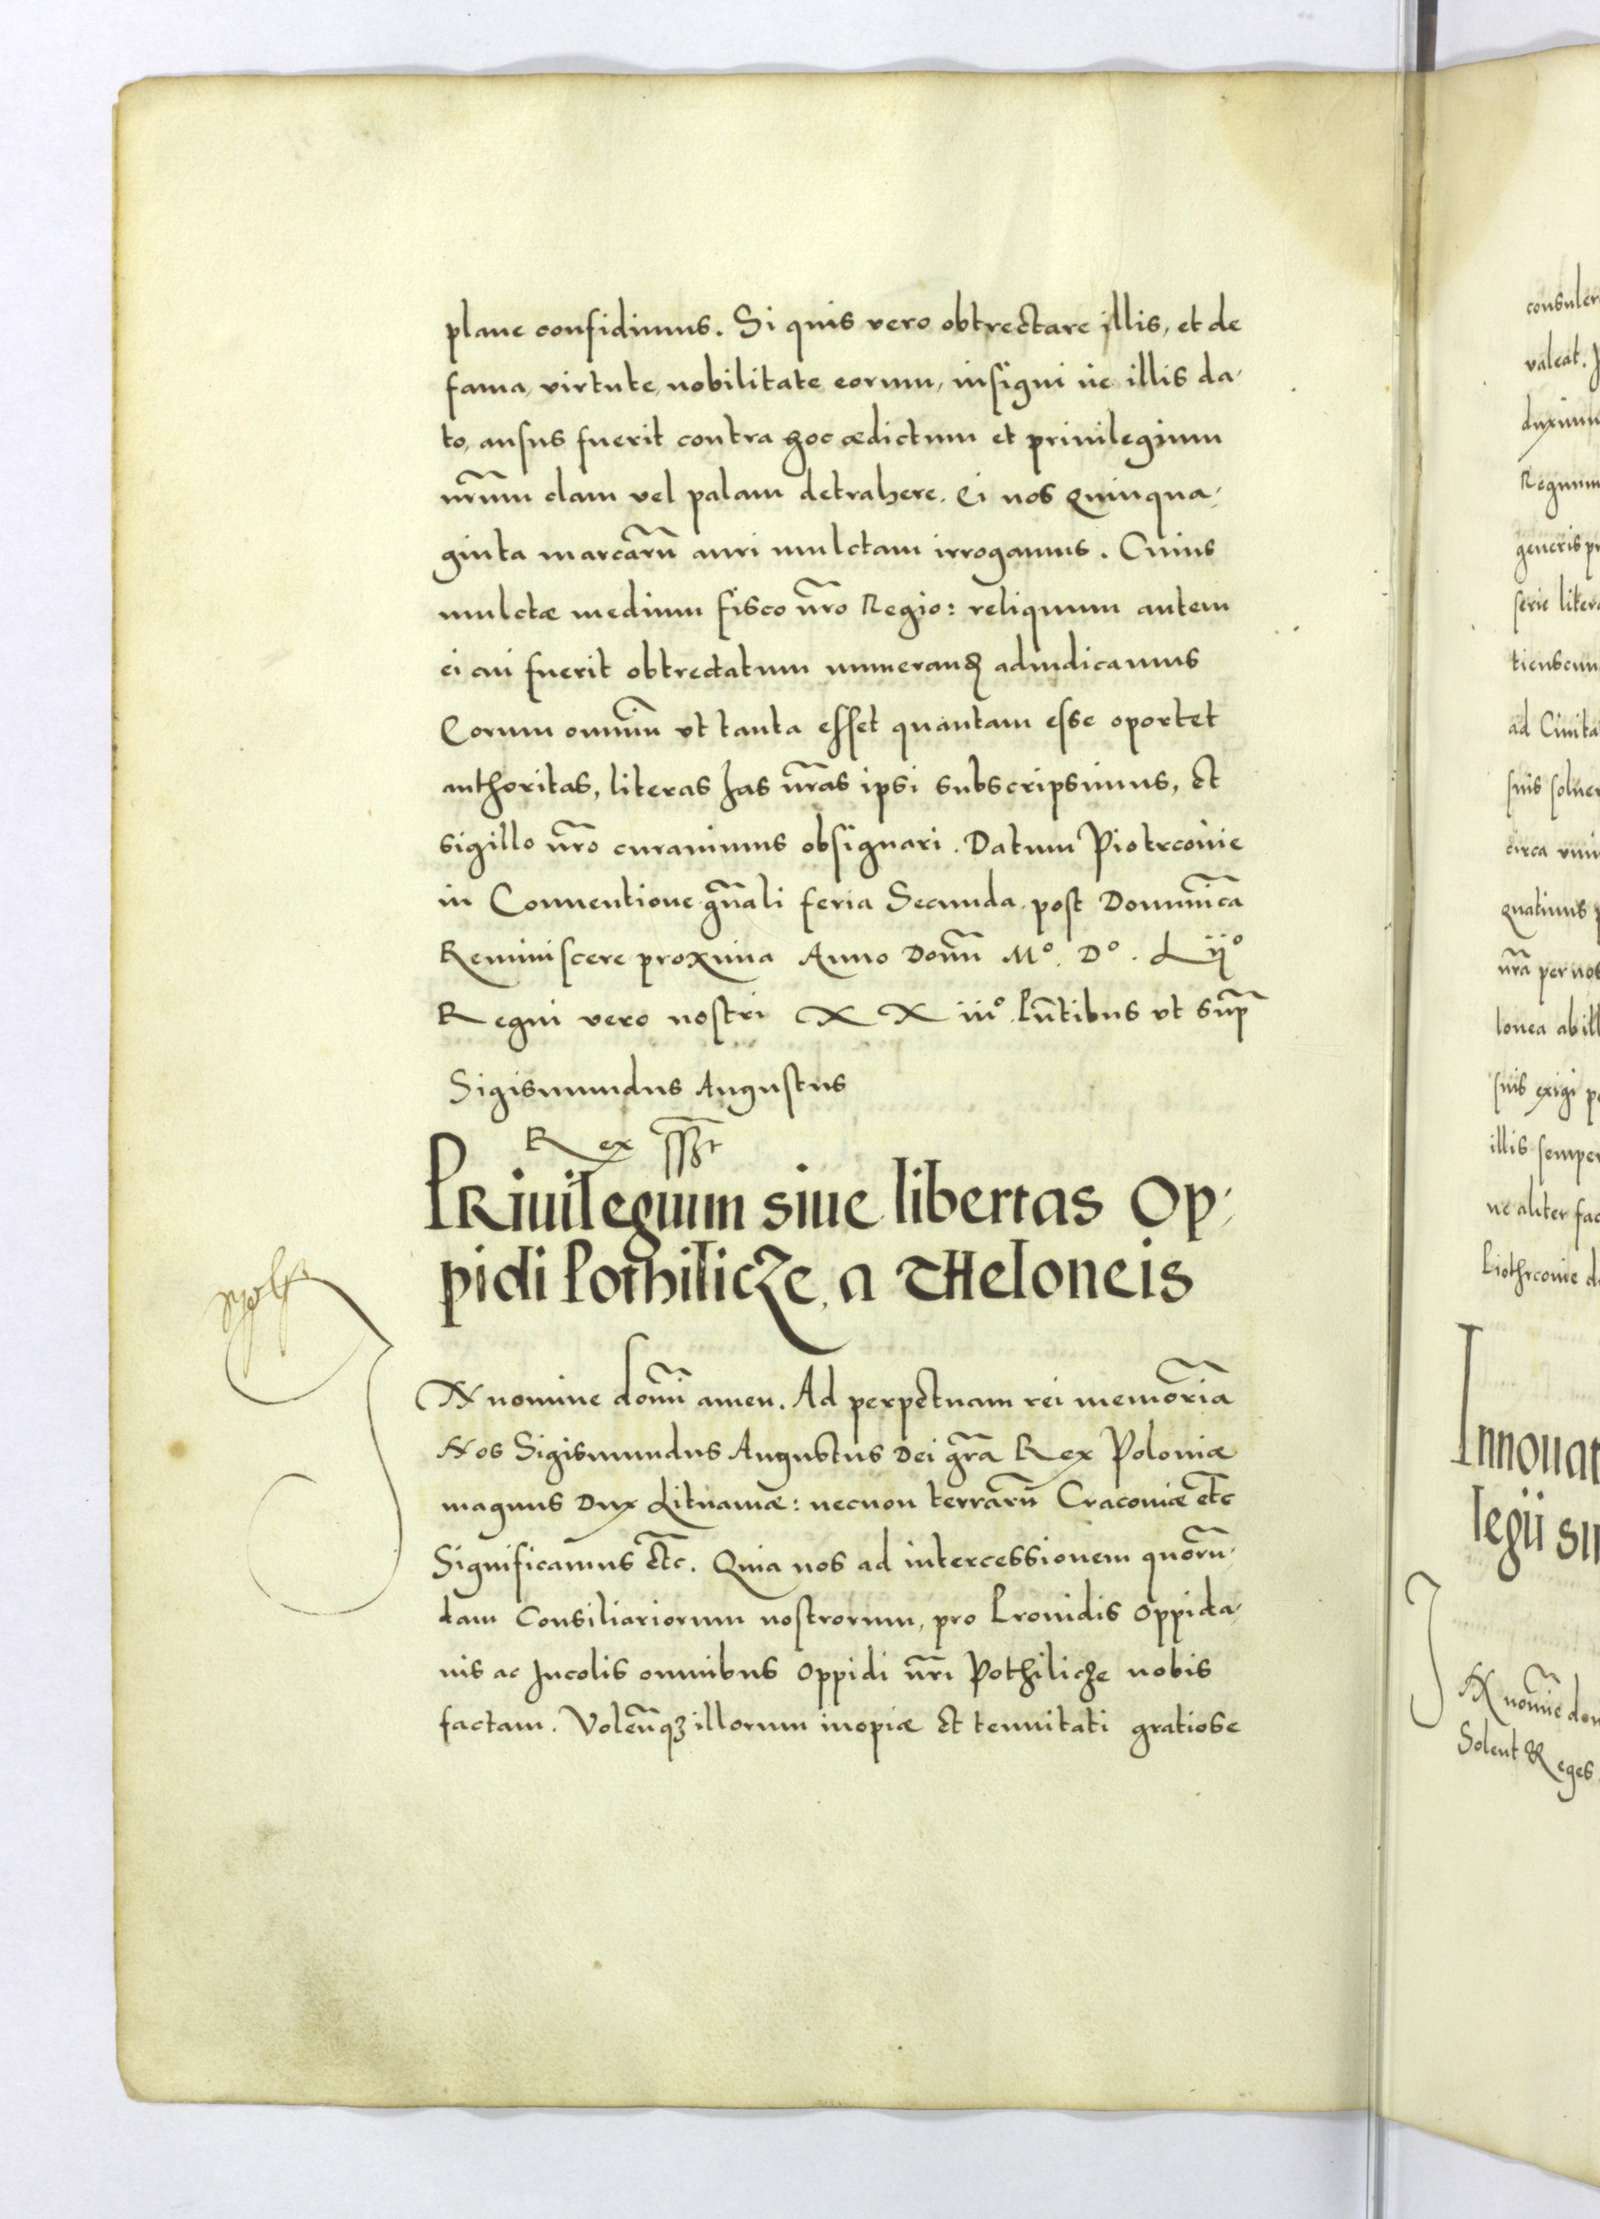 plane confidimus. Si quis vero obtrectare illis, et de
fama, virtute, nobilitate eorum, insigni ve illis da-
to, ausus fuerit contra hoc ædictum et priuilegium
nr̃um clam vel palam detrahere. Ei nos Quinqua-
ginta marcarũ auri mulctam irrogamus. Cuius
mulctæ medium fisco nr̃o Regio: reliquum autem
ei cui fuerit obtrectatum numerand adiudicamus
Eorum omniũ vt tanta esset quantam esse oportet
authoritas, literas has nr̃as ipsi subscripsimus, et
sigillo nr̃o curauimus obsignari. Datum Piotrcouie
in Conuentione gñali feria Secunda post Dominĩca
Reminiscere proxima Anno Domĩ Mº. Dº. Lijº
Regni vero nostri XXiijº. Pñtibus vt supr̃
Sigismundus Augustus
Rex sst
PRiuilegium siue libertas Op-
pidi Pothilicze, a THeloneis
IN nomine domĩ amen. Ad perpetuam rei memor̃ia
Nos Sigismundus Augustus Dei gr̃a Rex Poloniæ
magnus Dux Lituaniæ: necnon terrarũ Cracouiæ etc̃
Significamus etc̃. Quia nos ad intercessionem quorũ-
dam Consiliariorum nostrorum, pro Prouidis Oppida-
nis ac Incolis omnibus Oppidi nr̃i Pothilicze nobis
factam. Volen̄tqȝ illorum inopiæ et tenuitati gratiose
consuler
valeat.
duximu
Regnum
generis pr
serie litera
tienscun
ad Ciuita
suis soluer
circa
quatinus p
nr̃a per nos
lonea ab ill
suis exigi p
illis semper
ne aliter fac
Piothrcouie d
Innouat
legii si
IN nomĩe dom
Solent Reges